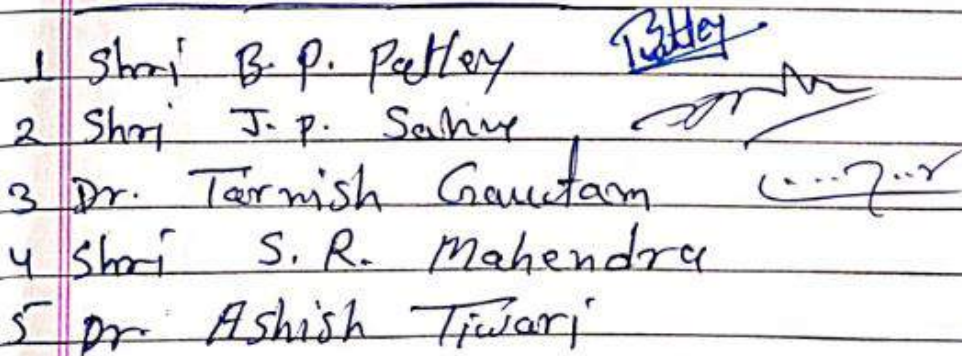 1 Shri B. P. Patley
2 Shri J. P. Sahu
3 Dr. Tarnish Gautam
4 Shri S. R. Mahendra
5 Dr. Ashish Tiwari